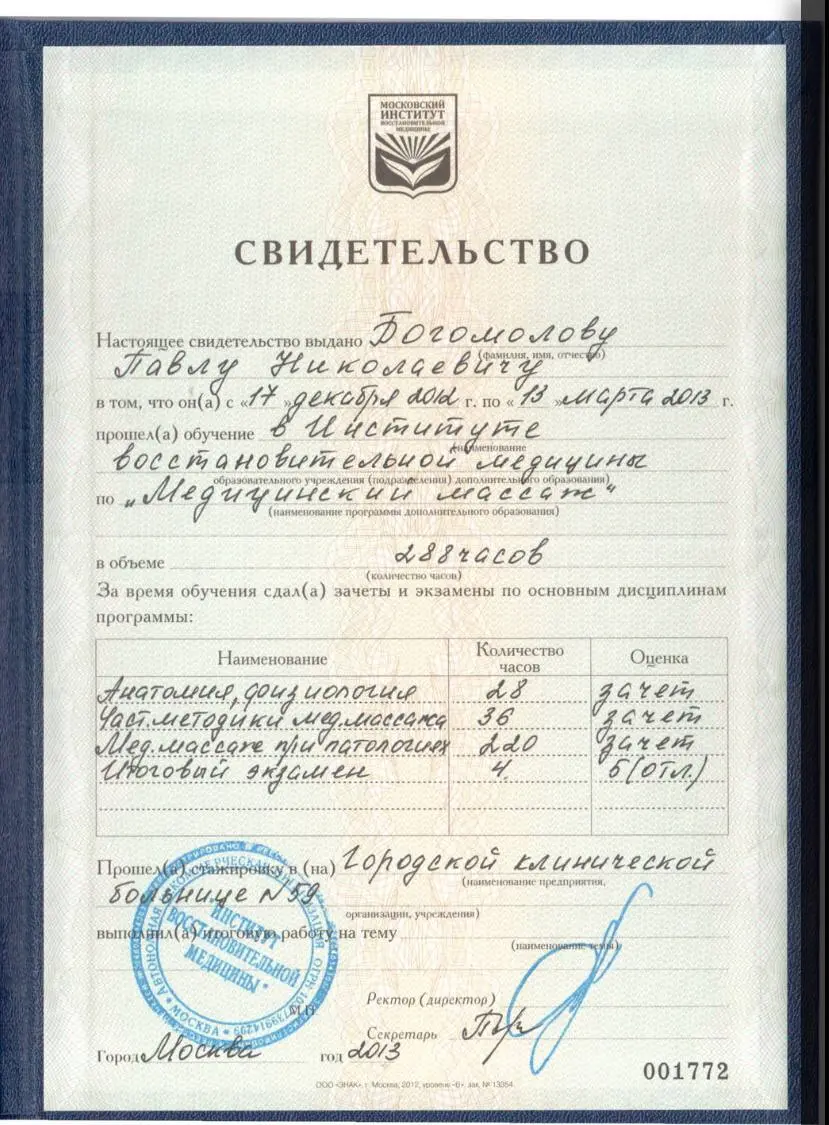 МОСКОВСКИЙ
ИНСТИТУТ
ВОССТАНОВИТЕЛЬНОЙ
МЕДИЦИНЫ
СВИДЕТЕЛЬСТВО
Настоящее свидетельство выдано Богомолову
(фамилия, имя, отчество)
Павлу Николаевичу
в том, что он(а) с «17» декабря 2012 г. по «13» марта 2013 г.
прошел(а) обучение в Институте
(наименование
восстановительной медицины
образовательного учреждения (подразделения) дополнительного образования)
по „Медицинский массаж“
(наименование программы дополнительного образования)
в объеме 288 часов
(количество часов)
За время обучения сдал(а) зачеты и экзамены по основным дисциплинам
программы:
Наименование Количество часов Оценка
Анатомия, физиология 28 зачет
Част. методики мед. массажа 36 зачет
Мед. массаж при патологиях 220 зачет
Итоговый экзамен 4 5 (отл.)
Прошел(а) стажировку в (на) Городской клинической
(наименование предприятия,
больнице №59
организации, учреждения)
выполнил(а) итоговую работу на тему
(наименование темы)
ИНСТИТУТ
ВОССТАНОВИТЕЛЬНОЙ
МЕДИЦИНЫ
МОСКВА
М.П.
Ректор (директор)
Секретарь
Город Москва год 2013
001772
ООО «ЗНАК», г. Москва, 2012, уровень «В», зак. № 13354